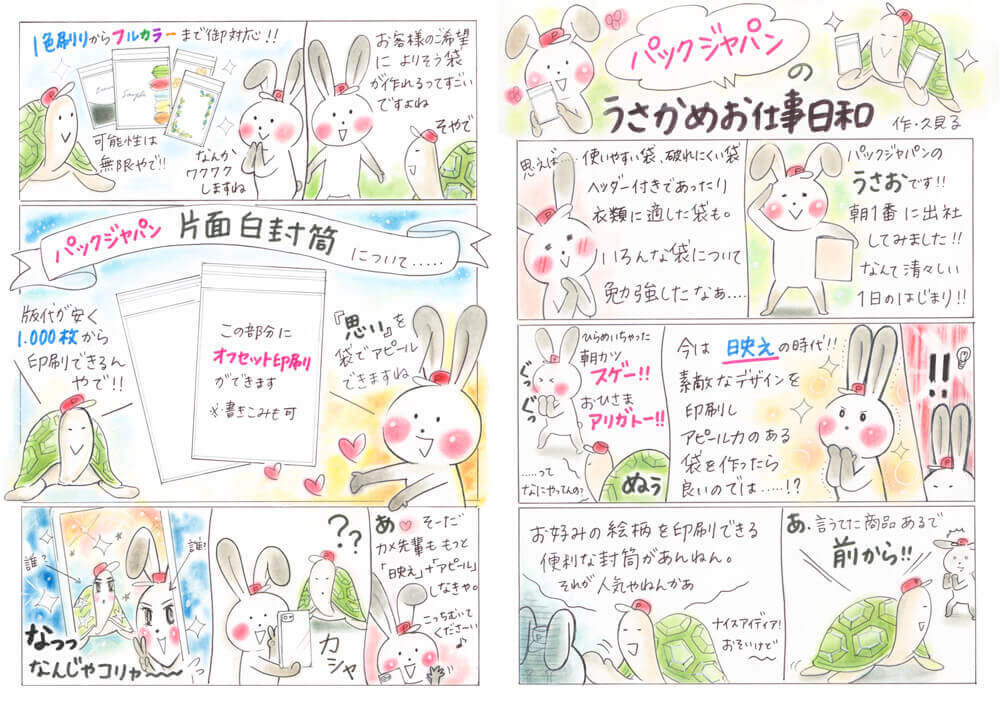 パックジャパン
の
うさかめお仕事日和
作・久見る
パックジャパンの
うさおです!!
朝1番に出社
してみました!!
なんて清々しい
1日のはじまり!!
思えば‥‥
使いやすい袋、破れにくい袋
ヘッダー付きであったり
衣類に適した袋も。
いろんな袋について
勉強したなぁ‥‥
!!
今は 日映えの時代!!
素敵なデザインを
印刷し
アピール力のある
袋を作ったら
良いのでは‥‥!?
ひらめいちゃった
朝カツ
スゲー!!
おひさま
アリガトー!!
ぐっ
ぐっ
‥‥って
なにやってんの?
ぬぅ
あ、言うてた商品あるで
前から!!
お好みの絵柄を印刷できる
便利な封筒があんねん。
それが人気やねんかぁ
ナイスアイディア!
おそいけど
お客様のご希望
に よりそう袋
が作れるってすごい
ですよね
そやで
1色刷りからフルカラーまで御対応!!
Sample
可能性は
無限やで!!
なんか
ワクワク
しますね
パックジャパン 片面白封筒
について‥‥‥
版代が安く
1.000枚から
印刷できるん
やで!!
この部分に
オフセット印刷
ができます
※書きこみも可
『思い』を
袋でアピール
できますね
あ♡ そーだ
カメ先輩も もっと
「日映え」+アピール
しなきゃ。
こっちむいて
くださーい♪
??
カシャ
誰?
誰?
なっっ
なんじゃコリャ〜〜